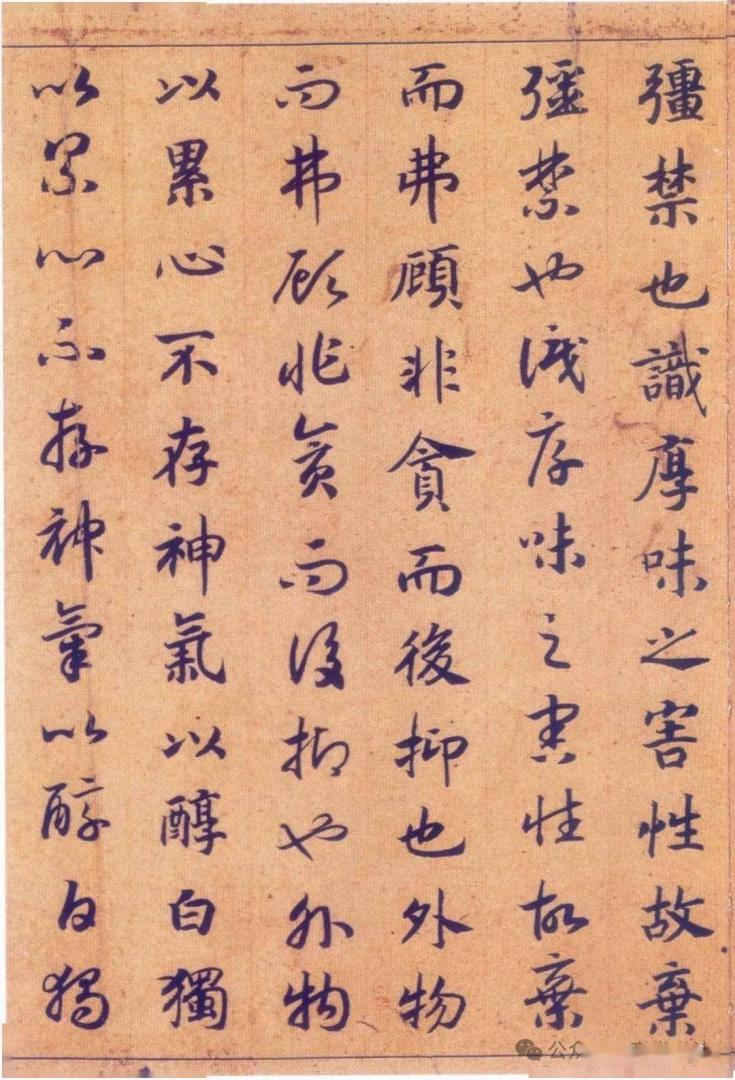 彊禁也識厚味之害性故棄
彊禁也識厚味之害性故棄
而弗顧非貪而後抑也外物
而弗顧非貪而後抑也外物
以累心不存神氣以醇白獨
以累心不存神氣以醇白獨
公众